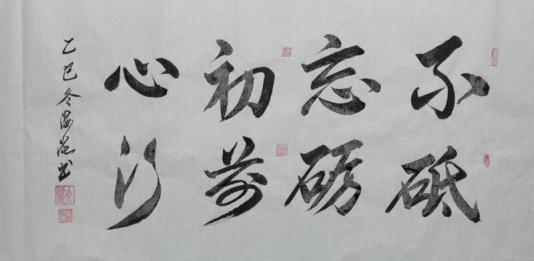 不忘初心
砥砺前行
乙巳冬书